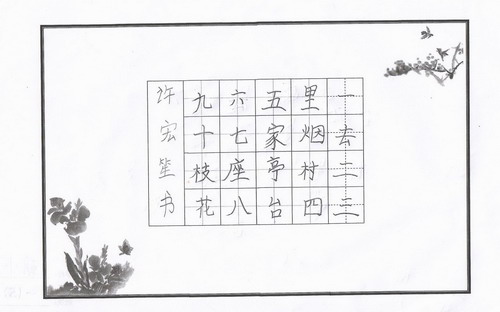 一去二三
里烟村四
五家亭台
六七座八
九十枝花
许宏笙书